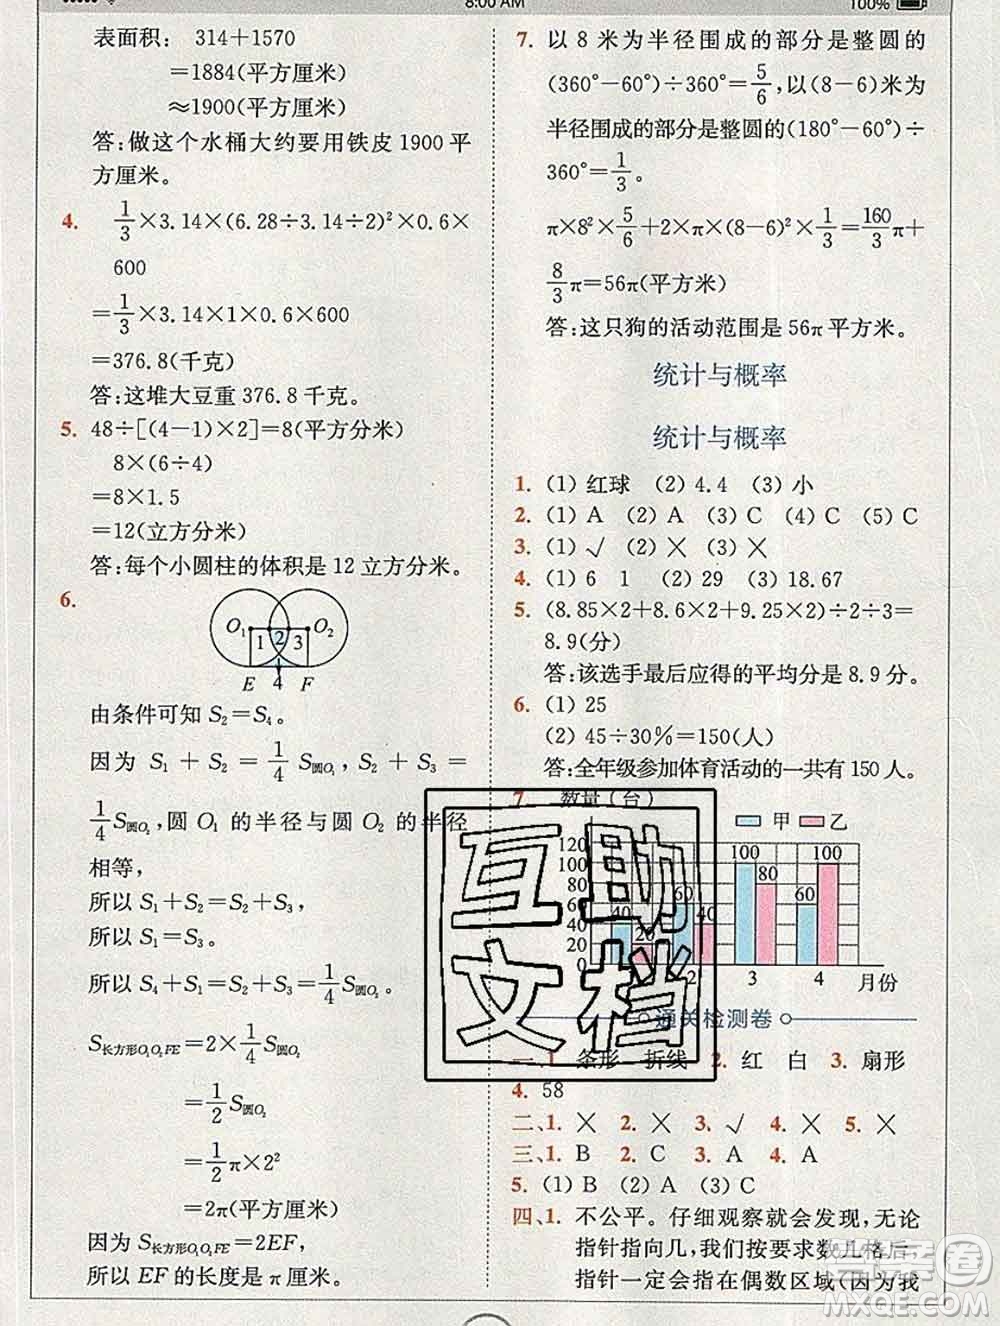 8:00 AM
100%
表面积： 314+1570
=1884(平方厘米)
≈1900(平方厘米)
答:做这个水桶大约要用铁皮 1900 平
方厘米。
4. 1/3×3.14×(6.28÷3.14÷2)²×0.6×
600
=1/3×3.14×1×0.6×600
=376.8(千克)
答:这堆大豆重 376.8 千克。
5. 48÷[(4-1)×2]=8(平方分米)
8×(6÷4)
=8×1.5
=12(立方分米)
答:每个小圆柱的体积是 12 立方分米。
6.
O₁ 1 2 3 O₂
E 4 F
由条件可知 S₂=S₄。
因为 S₁+S₂=1/4 S圆O₁,S₂+S₃=
1/4 S圆O₂,圆 O₁ 的半径与圆 O₂ 的半径
相等，
所以 S₁+S₂=S₂+S₃，
所以 S₁=S₃。
所以 S₄+S₁+S₂+S₃=1/4 S圆O₂。
S长方形O₁O₂FE=2×1/4 S圆O₂
=1/2 S圆O₂
=1/2 π×2²
=2π(平方厘米)
因为 S长方形O₁O₂FE=2EF，
所以 EF 的长度是 π 厘米。
7. 以 8 米为半径围成的部分是整圆的
(360°-60°)÷360°=5/6,以(8-6)米为
半径围成的部分是整圆的(180°-60°)÷
360°=1/3。
π×8²×5/6+2×π×(8-6)²×1/3=160/3π+
8/3π=56π(平方米)
答:这只狗的活动范围是 56π 平方米。
统计与概率
统计与概率
1. (1) 红球 (2) 4.4 (3) 小
2. (1) A (2) A (3) C (4) C (5) C
3. (1) √ (2) × (3) ×
4. (1) 6 1 (2) 29 (3) 18.67
5. (8.85×2+8.6×2+9.25×2)÷2÷3=
8.9(分)
答:该选手最后应得的平均分是 8.9 分。
6. (1) 25
(2) 45÷30%=150(人)
答:全年级参加体育活动的一共有 150 人。
7. 数量（台）
甲 乙
120
100
80
60
40
20
0
40 20 60 40 100 80 60 100
2 3 4 月份
通关检测卷
一、1. 条形 折线 2. 红 白 3. 扇形
4. 58
二、1. × 2. × 3. √ 4. × 5. ×
三、1. B 2. C 3. A 4. A
5. (1) B (2) A (3) C
四、1. 不公平。仔细观察就会发现,无论
指针指向几,我们按要求数几格后,
指针一定会指在偶数区域(因为我
互助
文档
答案圈
MXQE.COM